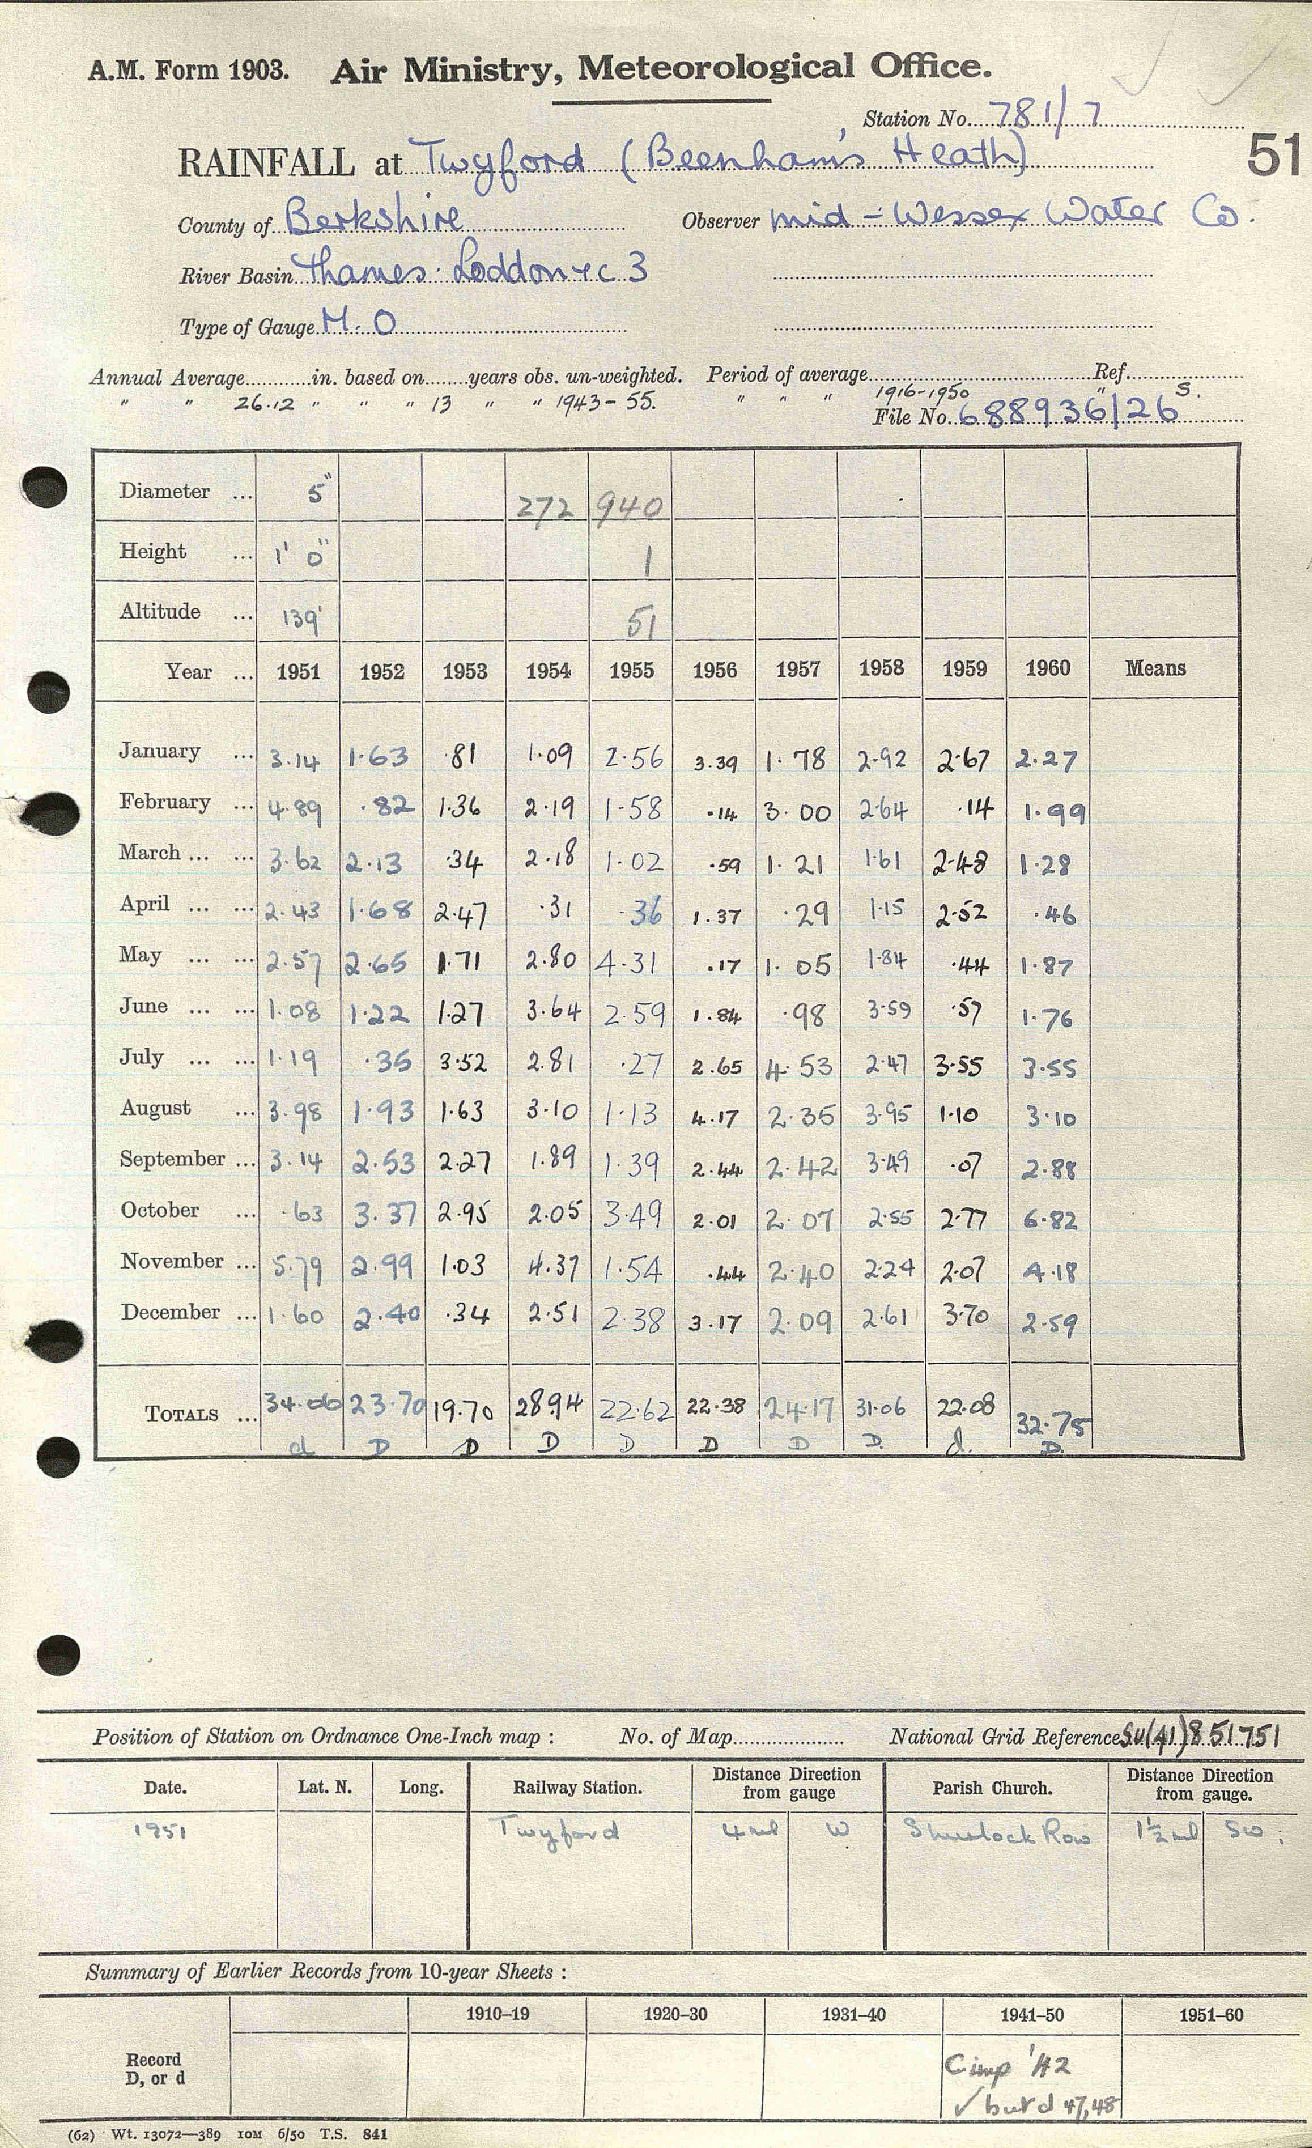 A.M. Form 1903. Air Ministry, Meteorological Office.
Station No. 781/7
RAINFALL at Twyford (Beenham's Heath)
51
County of Berkshire Observer Mid-Wessex Water Co.
River Basin Thames: Loddon &c 3
Type of Gauge M.O
Annual Average............in. based on........years obs. un-weighted. Period of average............Ref............
" " 26.12 " " " 13 " " 1943-55. " " " 1916-1950 " S.
File No. 688936/26
Diameter ... 5" 272 940
Height ... 1' 0" 1
Altitude ... 139' 51
Year ... 1951 1952 1953 1954 1955 1956 1957 1958 1959 1960 Means
January ... 3.14 1.63 .81 1.09 2.56 3.39 1.78 2.92 2.67 2.27
February ... 4.89 .82 1.36 2.19 1.58 .14 3.00 2.64 .14 1.99
March ... ... 3.62 2.13 .34 2.18 1.02 .59 1.21 1.61 2.48 1.28
April ... ... 2.43 1.68 2.47 .31 .36 1.37 .29 1.15 2.52 .46
May ... ... 2.57 2.65 1.71 2.80 4.31 .17 1.05 1.84 .44 1.87
June ... ... 1.08 1.22 1.27 3.64 2.59 1.84 .98 3.59 .57 1.76
July ... ... 1.19 .35 3.52 2.81 .27 2.65 4.53 2.47 3.55 3.55
August ... 3.98 1.93 1.63 3.10 1.13 4.17 2.35 3.95 1.10 3.10
September ... 3.14 2.53 2.27 1.89 1.39 2.44 2.42 3.49 .07 2.88
October ... .63 3.37 2.95 2.05 3.49 2.01 2.07 2.55 2.77 6.82
November ... 5.79 2.99 1.03 4.37 1.54 .44 2.40 2.24 2.07 4.18
December ... 1.60 2.40 .34 2.51 2.38 3.17 2.09 2.61 3.70 2.59
TOTALS ... 34.06 23.70 19.70 28.94 22.62 22.38 24.17 31.06 22.08 32.75
d D D D D D D D. d. D.
Position of Station on Ordnance One-Inch map : No. of Map.................... National Grid Reference SU(41)851751
Date. Lat. N. Long. Railway Station. Distance from gauge Direction Parish Church. Distance from gauge. Direction
1951 Twyford 4 ml W Shurlock Row 1½ ml SW.
Summary of Earlier Records from 10-year Sheets :
1910-19 1920-30 1931-40 1941-50 1951-60
Record
D, or d
Cimp '42
✓ but d 47,48
(62) Wt. 13072—389 10M 6/50 T.S. 841